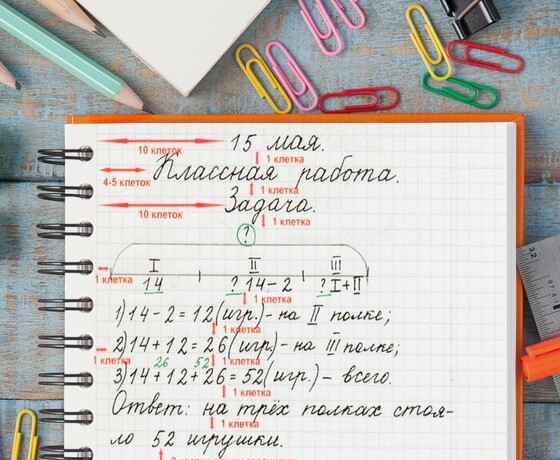 15 мая.
10 клеток
1 клетка
Классная работа.
4-5 клеток
1 клетка
Задача.
10 клеток
1 клетка
?
I II III
1 клетка
14 ? 14-2 ? I+II
1 клетка
1) 14-2=12(игр.)-на II полке;
1 клетка
2) 14+12=26(игр.)-на III полке;
1 клетка
26 52 1 клетка
3) 14+12+26=52(игр.)-всего.
1 клетка
Ответ: на трёх полках стоя-
1 клетка
ло 52 игрушки.